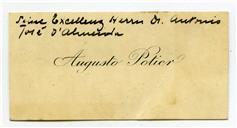 Seine Excellenz Herrn Dr. Antonio
José d'Almeida
Augusto Potier